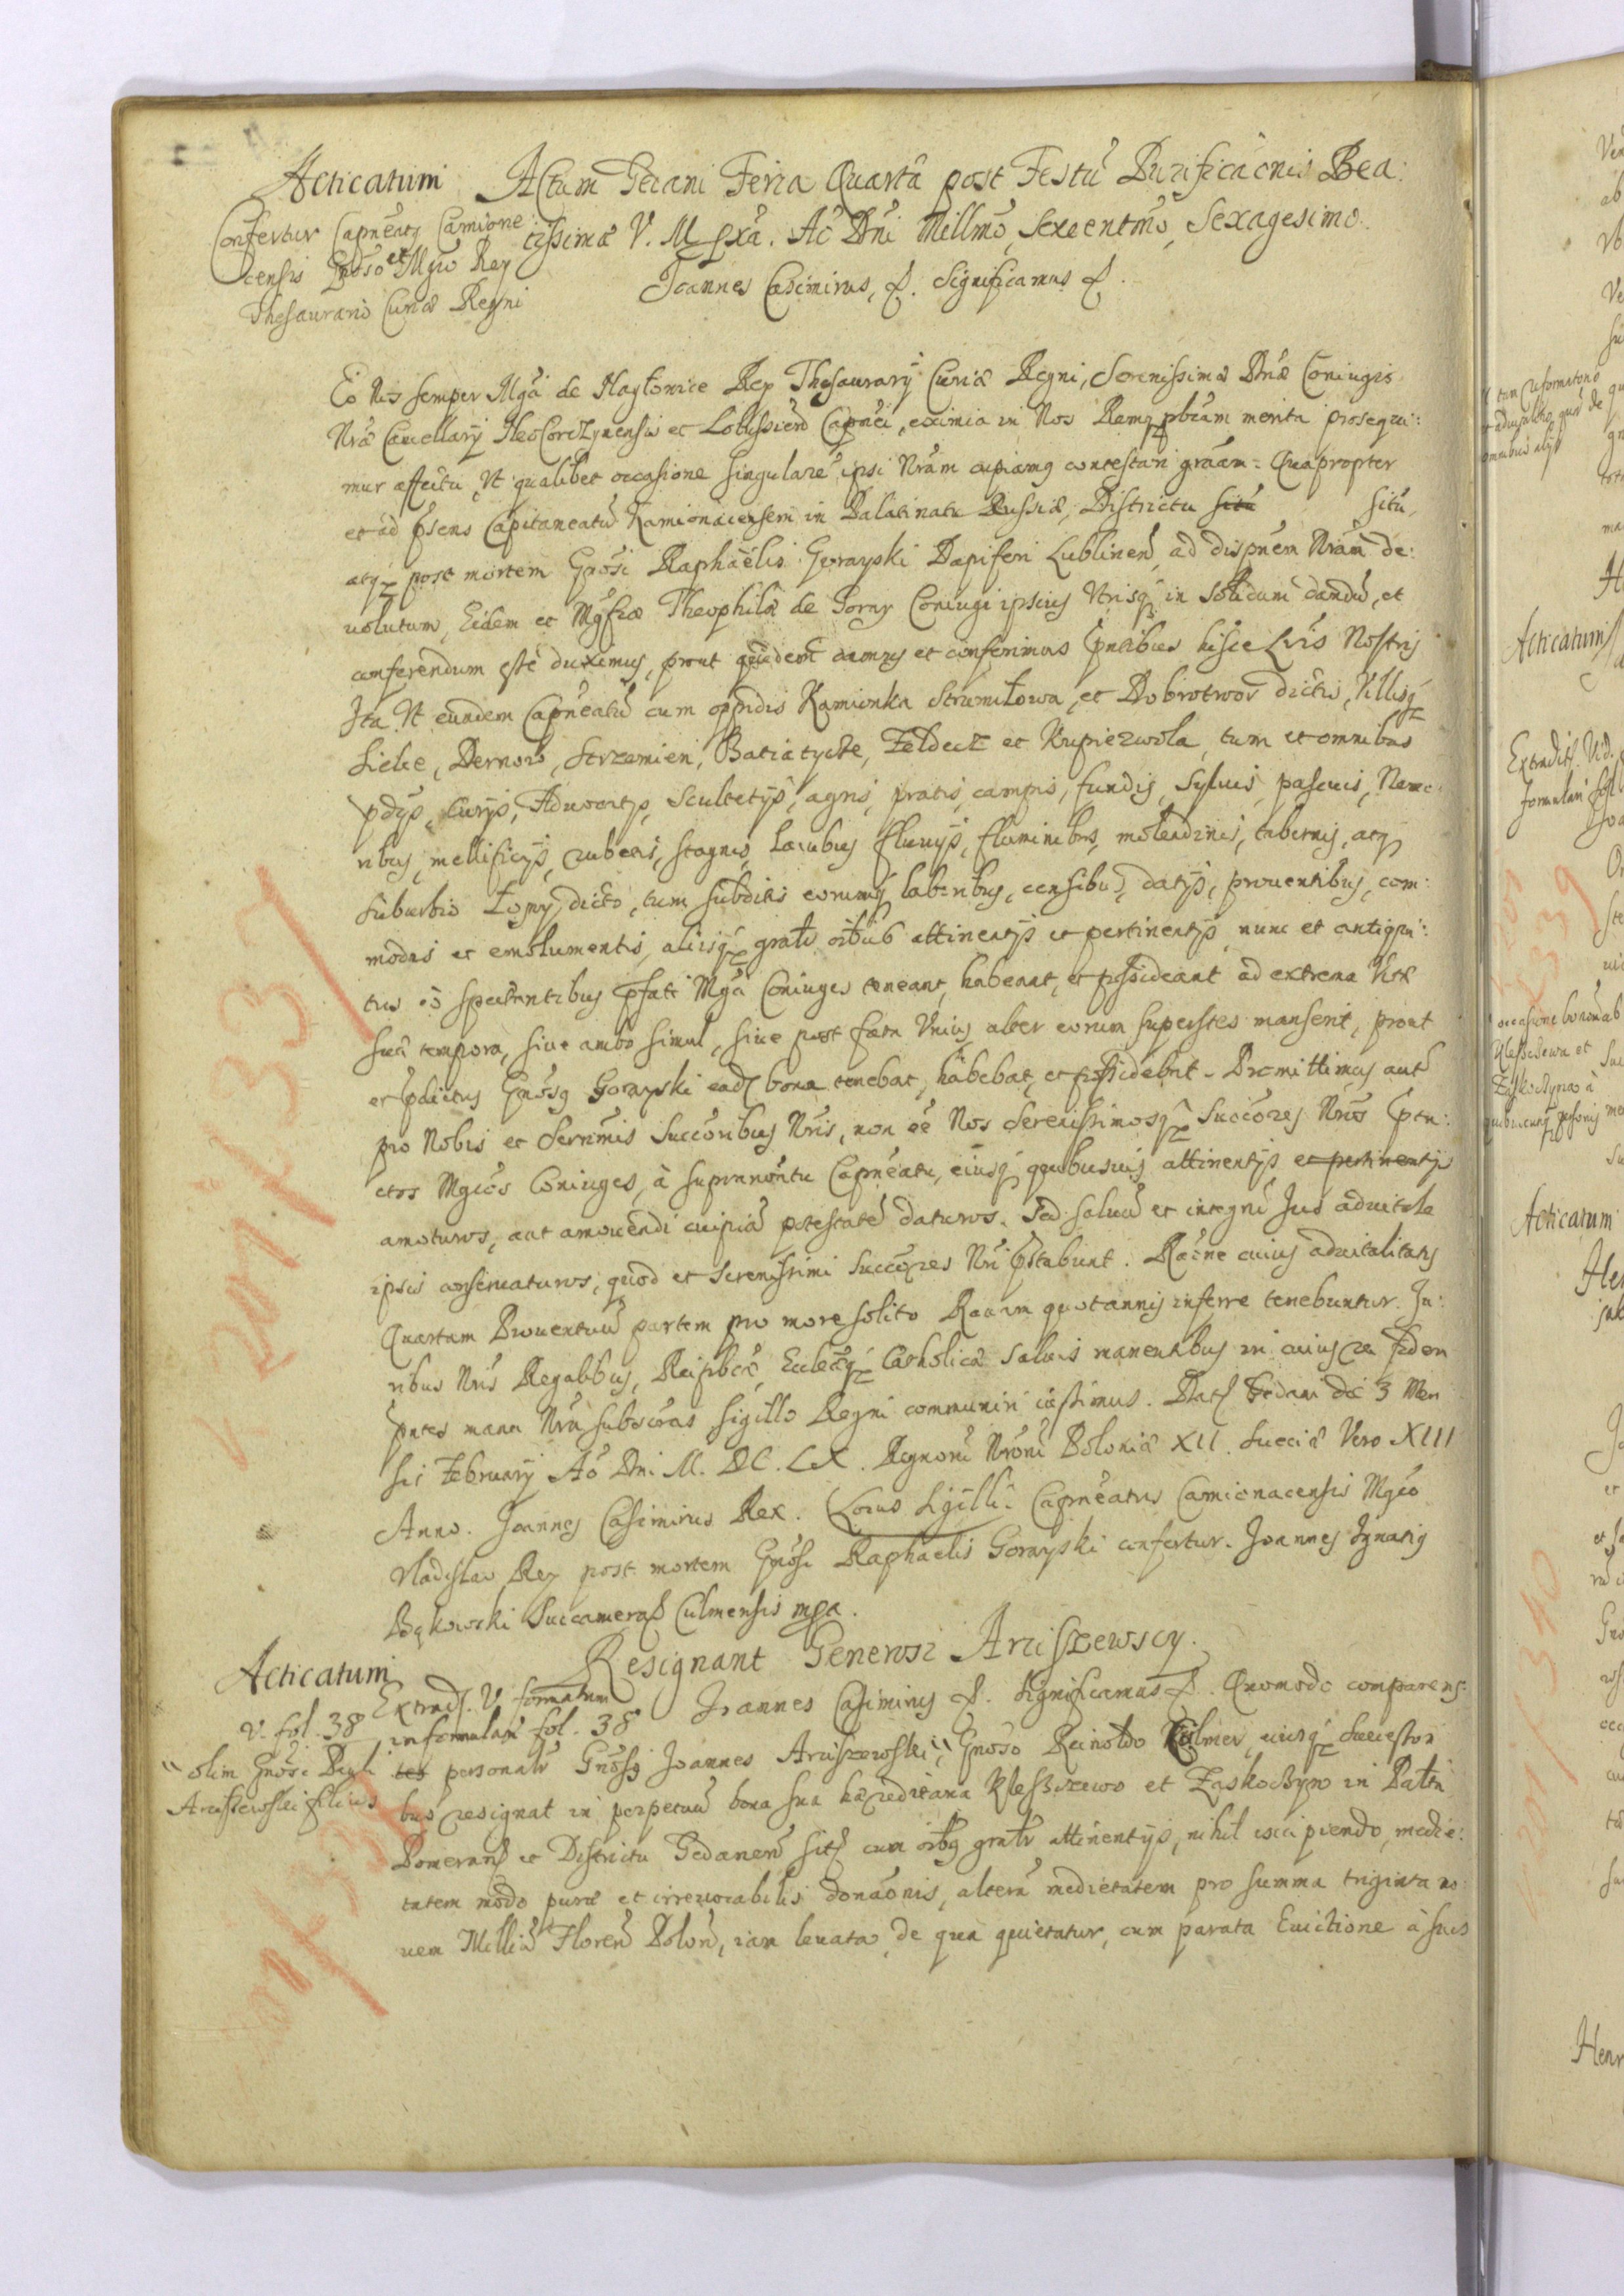 Acticatum
Confertur Capneatus Camione:
censis Gnoso et Mgco Rey
Thesaurario Curiæ Regni
Actum Gedani Feria Quarta post Festū Purificãonis Bea:
tissimæ V. M. pxã. Aõ Dñi Millmõ, Sexcentmõ, Sexagesimo.
Joannes Casimirus, &. Significamus &.
Eo Nos semper Mgci de Nagłowice Rey Thesaurarÿ Curiæ Regni, Serenissimæ Dnæ Coniugis
Nræ Cancellarÿ NeoCorczynensis et Lobissiens Capnei, eximia in Nos Remqz pbcam merita prosequi:
mur affectu, Vt qualibet occasione singularē ipsi Nram cupiamq contestari graām. Quapropter
et ad psens Capitaneatū Kamionacensem in Palatinatu Russiæ, Districtu situ situ,
atqz post mortem Gnosi Raphaëlis Gorayski Dapiferi Lublinen, ad dispnem Nram de:
uolutum, Eidem et Mgficæ Theophilæ de Goray Coniugi ipsius Vtrisq in solidum dandū, et
conferendum esse duximus, prout quidem damus et conferimus pntibus hisce Lris Nostris
Ita Vt eundem Capneatū cum oppidis Kamionka Strumiłowa, et Dobrotwor dictis, Villisqz
Sielce, Dernow, Strzemien, Batiatycze, Zeldecz et Kupiczwola, tum et omnibus
pdÿs, Curÿs, Aduocatÿs, Scultetÿs, agris, pratis, campis, fundis, syluis, pascuis, Neme:
ribus, mellificÿs, rubetis, stagnis, lacubus fluuÿs, fluminibus, molendinis, tabernis, atq
suburbio Łany dicto, tum subditis eorumq laboribus, censibus, datÿs, prouentibus, com:
modis et emolumentis, alÿsqz gratr oibus attinentÿs et pertinentÿs nunc et antiqui:
tus eo spectantibus pfati Mgci Coniuges teneant, habeant, et possideant ad extrema Vitæ
suæ tempora, siue ambo simul, siue post fata Vnius alter eorum superstes manserit, prout
et pdictus Gnosq Gorayski eadz bona tenebat, habebat, et possidebat. Promittimus aut
pro Nobis et Sernmis Succoribus Nris, non eē Nos Serenissimosqz Succores Nros pm:
ctos Mgcos Coniuges, à supranontu Capneatu, eiusq quibusuis attinentÿs et pertinentÿs
amoturos, aut amouendi cuipiā potestatē daturos. Sed saluū et integrū Jus aduitale
ipsis conseruaturos, quod et Serenissimi Succores Nri pstabunt. Racne cuius aduitalitatis
Quartam Prouentuū partem pro more solito Rauam quotannis inferre tenebuntur. Ju:
ribus Nris Regalibus, Reipbcæ, Eccleæqz Catholicæ saluis manentibus in cuius rei fidem
pntes manu Nra subscras sigillo Regni communiri iussimus. Datz Gedani die 3 Men
sis Februarÿ Aõ Dni M. DC. LX. Regnorū Nrorū Poloniæ XII. Sueciæ Vero XIII
Anno. Joannes Casimirus Rex. Locus Sigilli. Capneatus Camionacensis Mgco
Vladislao Rey post mortem Gnosi Raphaelis Gorayski confertur. Joannes Ignatius
Bąkowski Succameraz Culmensis mpa.
Resignant Generosi Arciszewscy.
Acticatum
v. fol. 38
Extradz. V. formatum
in formulari fol. 38
Joannes Casimirus &. Significamus &. Quomodo comparens:
" olim Gnosi Pauli
Arciszewski filius
tes personalr Gnosq Joannes Arciszewski", Gnoso Reinoldo Külmer, eiusqz Successori
bus resignat in perpetuū bona sua hæreditaria Kleszczewo et Zaskoczyno in Paltū
Pomeranz et Districtu Gedanen sitz cum oibq gratr attinentÿs, nihil excipiendo, medie:
tatem modo puræ et irreuocabilis donaonis, alterā medietatem pro summa triginta no:
uem Milliū Floren Polon, iam leuata, de qua quietatur, cum parata Euictione à suis
V 201 f 337
V 201 f 338
Acticatum
Extraditz. Vid.
Acticatum